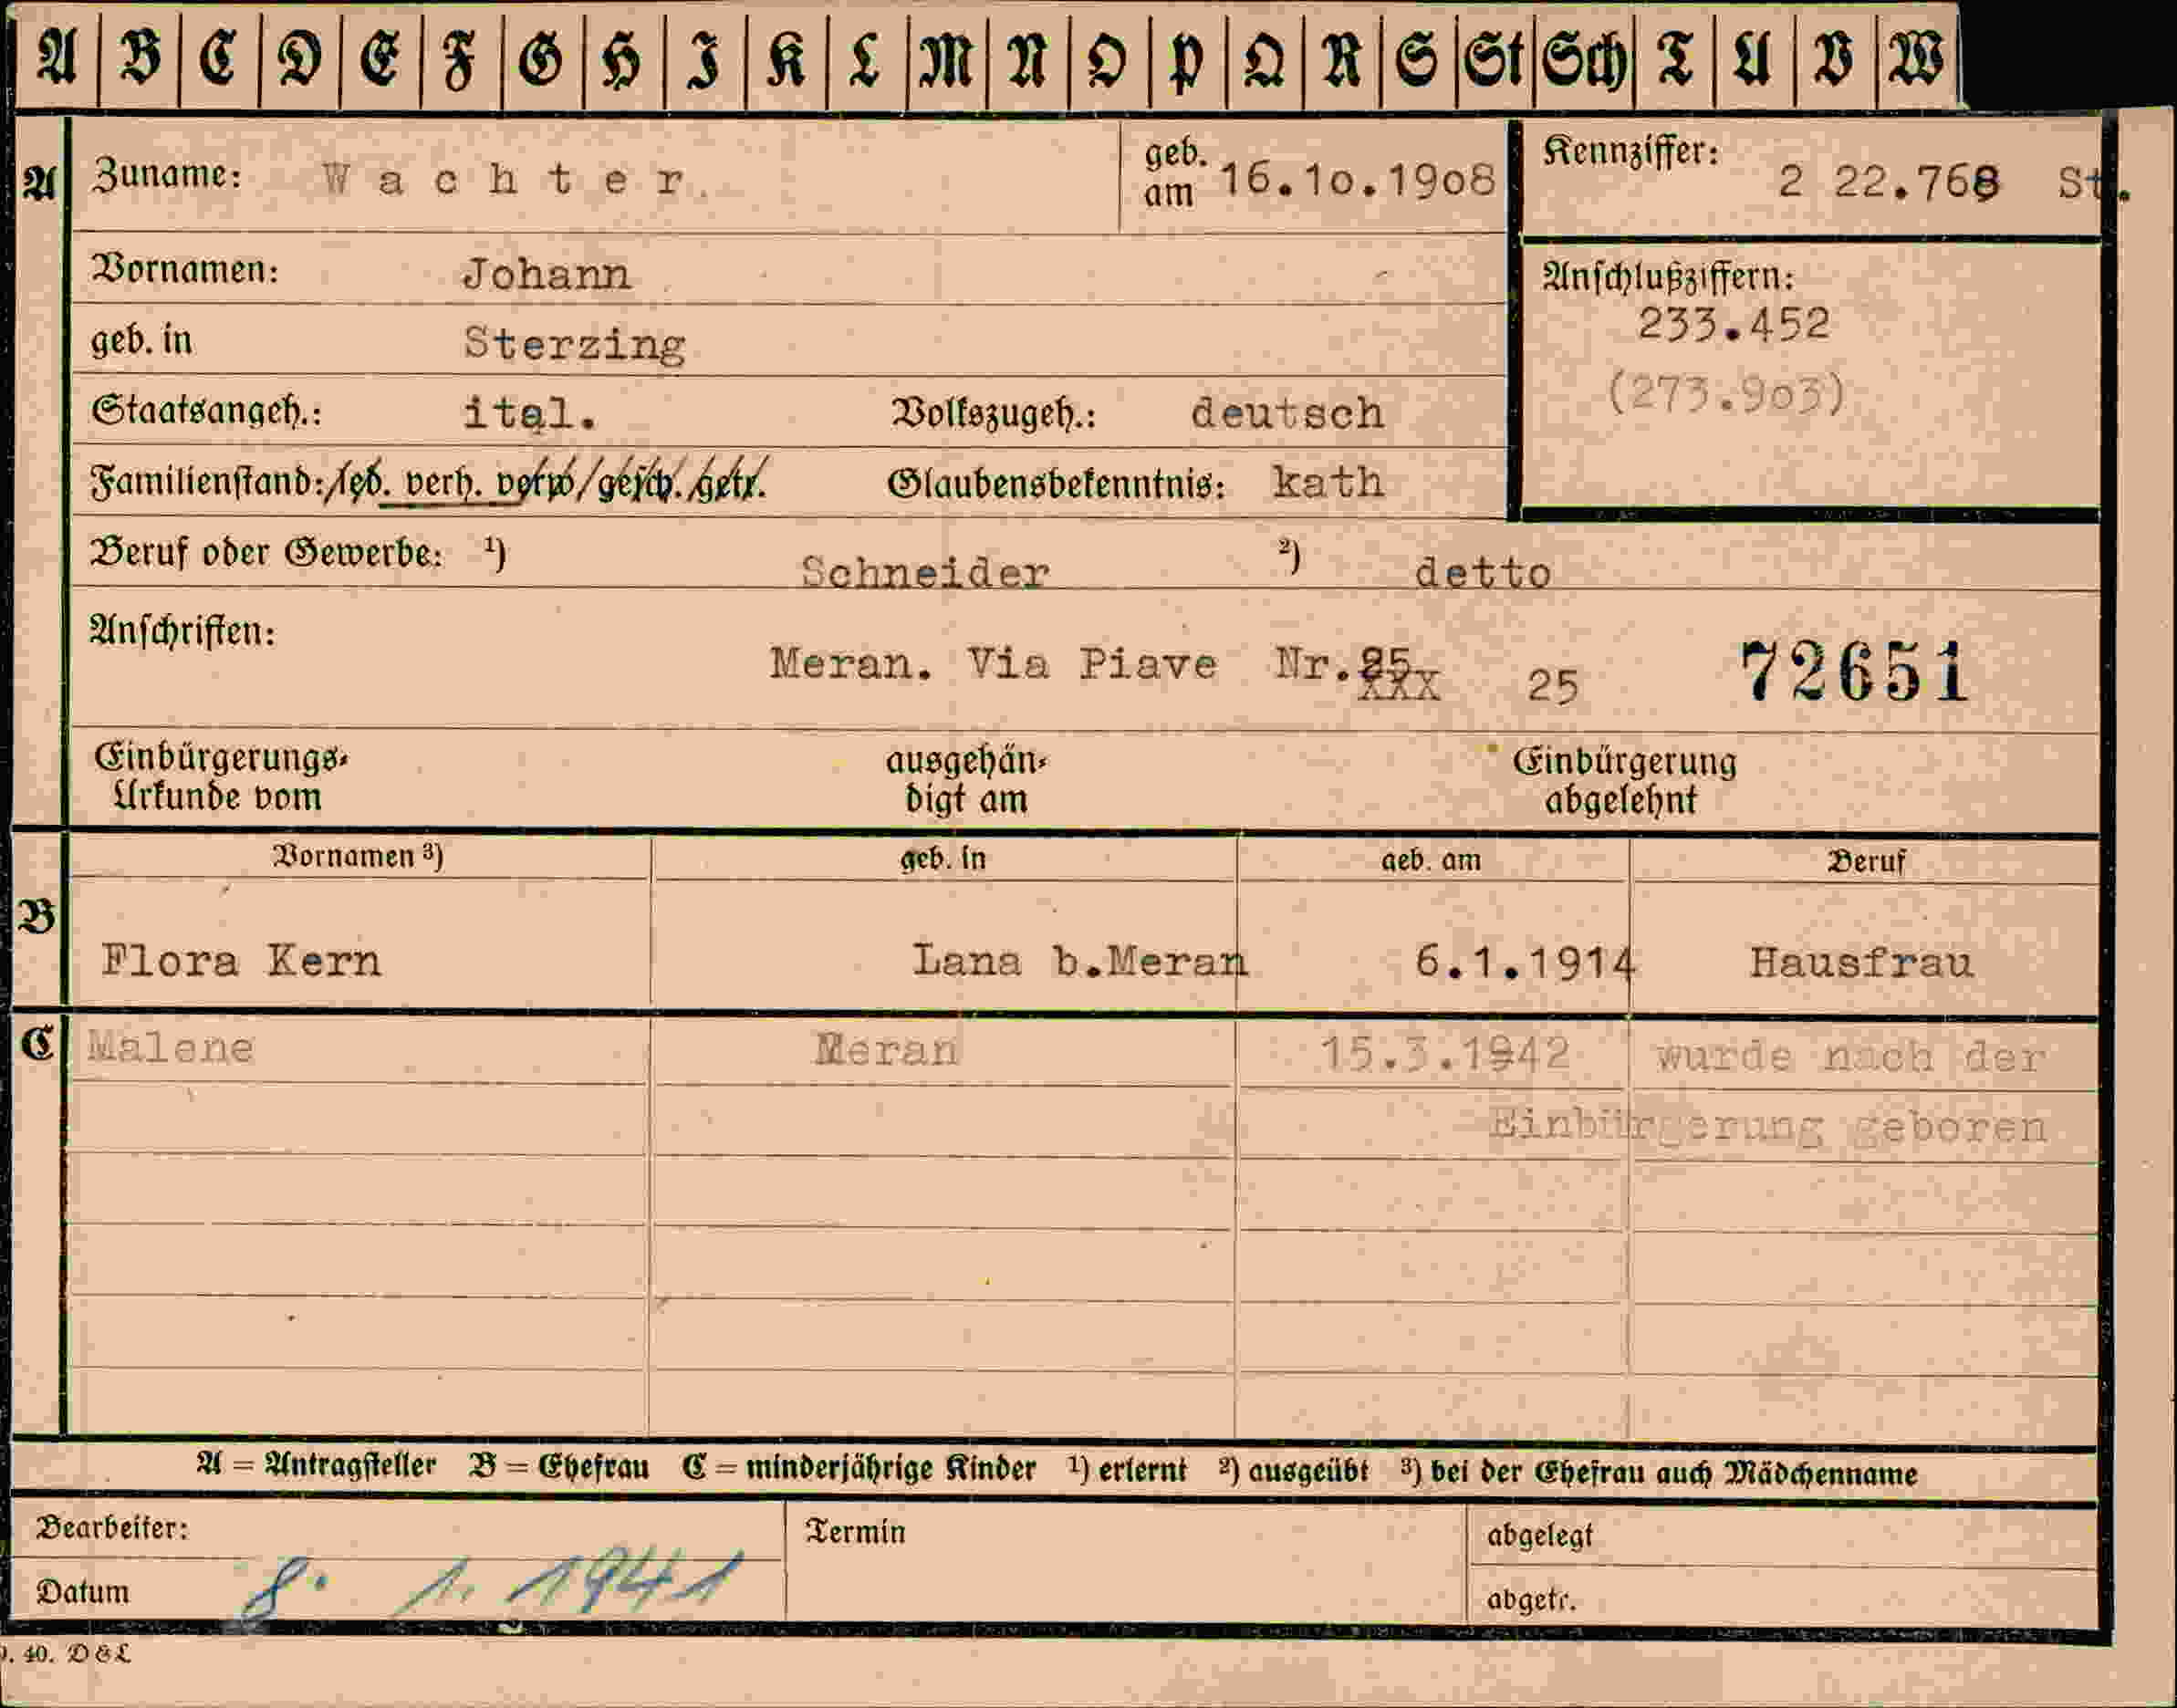 A B C D E F G H I K L M N O P Q R S St Sch T U V W
A Zuname: Wachter. geb. am 16.10.1908 Kennziffer: 2 22.768 St.
Vornamen: Johann
Anschlußziffern:
233.452
geb. in Sterzing
(273.903)
Staatsangeh.: ital. Volkszugeh.: deutsch
Familienstand: led. verh. verw. gesch. getr. Glaubensbekenntnis: kath
Beruf oder Gewerbe: ¹) Schneider ²) detto
Anschriften:
Meran. Via Piave Nr. 25 72651
Einbürgerungs-
Urkunde vom
ausgehän-
digt am
Einbürgerung
abgelehnt
Vornamen ³) geb. in geb. am Beruf
B Flora Kern Lana b.Meran 6.1.1914 Hausfrau
C Malene Meran 15.3.1942 wurde nach der
Einbürgerung geboren
A = Antragsteller B = Ehefrau C = minderjährige Kinder ¹) erlernt ²) ausgeübt ³) bei der Ehefrau auch Mädchenname
Bearbeiter:
Datum 8. 1. 1941
Termin
abgelegt
abgetr.
40. D & L